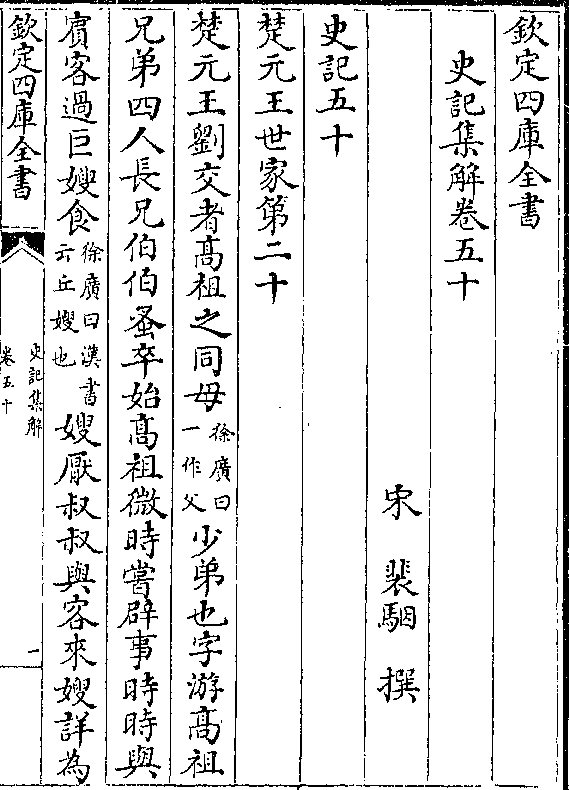 欽定四庫全書
史記集解卷五十
宋 裴駰 撰
史記五十
楚元王世家第二十
楚元王劉交者髙祖之同母徐廣曰一作父少弟也字游髙祖
兄弟四人長兄伯伯蚤卒始髙祖微時嘗辟事時時與
賔客過巨嫂食徐廣曰漢書云丘嫂也嫂厭叔叔與客來嫂詳為
欽定四庫全書
史記集解
卷五十
一